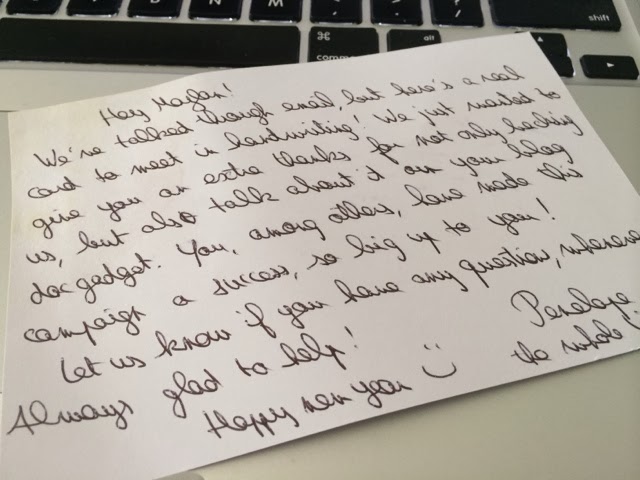 shift
⌘
alt
Hey Maylan!
We've talked through email, but here's a real
card to meet in handwriting! We just wanted to
give you an extra thanks for not only backing
us, but also talk about it on your blog
docgadget. You, among others, have made this
campaign a success, so big up to you!
Let us know if you have any question, whenever
Always glad to help!
Happy new year
Penelope
the whole